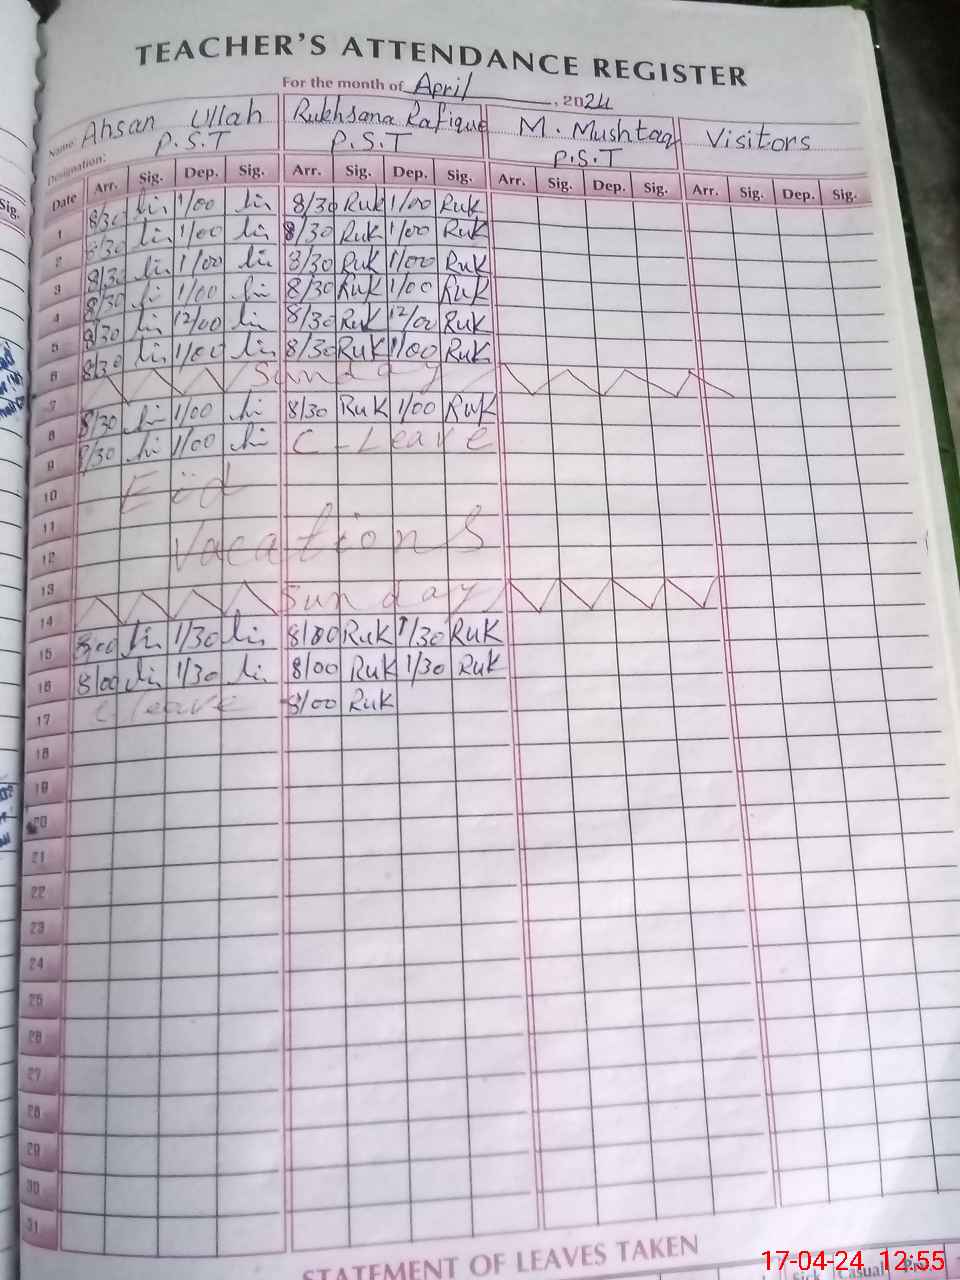 TEACHER'S ATTENDANCE REGISTER
For the month of April, 2024
Name: Ahsan Ullah Rukhsana Rafique M. Mushtaq Visitors
Designation: P.S.T P.S.T P.S.T
Date Arr. Sig. Dep. Sig. Arr. Sig. Dep. Sig. Arr. Sig. Dep. Sig. Arr. Sig. Dep. Sig.
1 8/30 1/00 8/30 Ruk 1/00 Ruk
2 8/30 1/00 8/30 Ruk 1/00 Ruk
3 8/30 1/00 8/30 Ruk 1/00 Ruk
4 8/30 1/00 8/30 Ruk 1/00 Ruk
5 8/30 12/00 8/30 Ruk 12/00 Ruk
6 8/30 1/00 8/30 Ruk 1/00 Ruk
7 Sunday
8 8/30 1/00 8/30 Ruk 1/00 Ruk
9 8/30 1/00 C-Leave
10 Eid
11
12 Vacations
13
14 Sunday
15 8/00 1/30 8/00 Ruk 1/30 Ruk
16 8/00 1/30 8/00 Ruk 1/30 Ruk
17 C leave 8/00 Ruk
18
19
20
21
22
23
24
25
26
27
28
29
30
31
STATEMENT OF LEAVES TAKEN
Sick Casual
17-04-24 12:55
Sig.